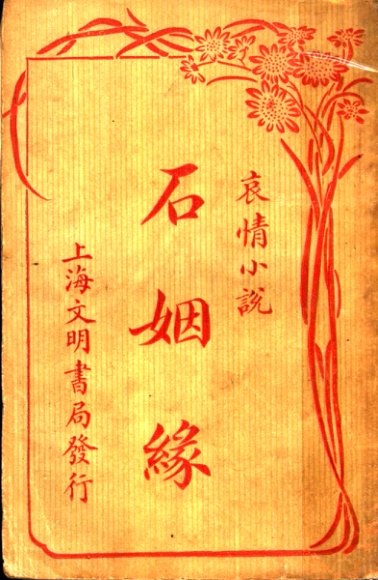 哀情小說
石姻緣
上海文明書局發行